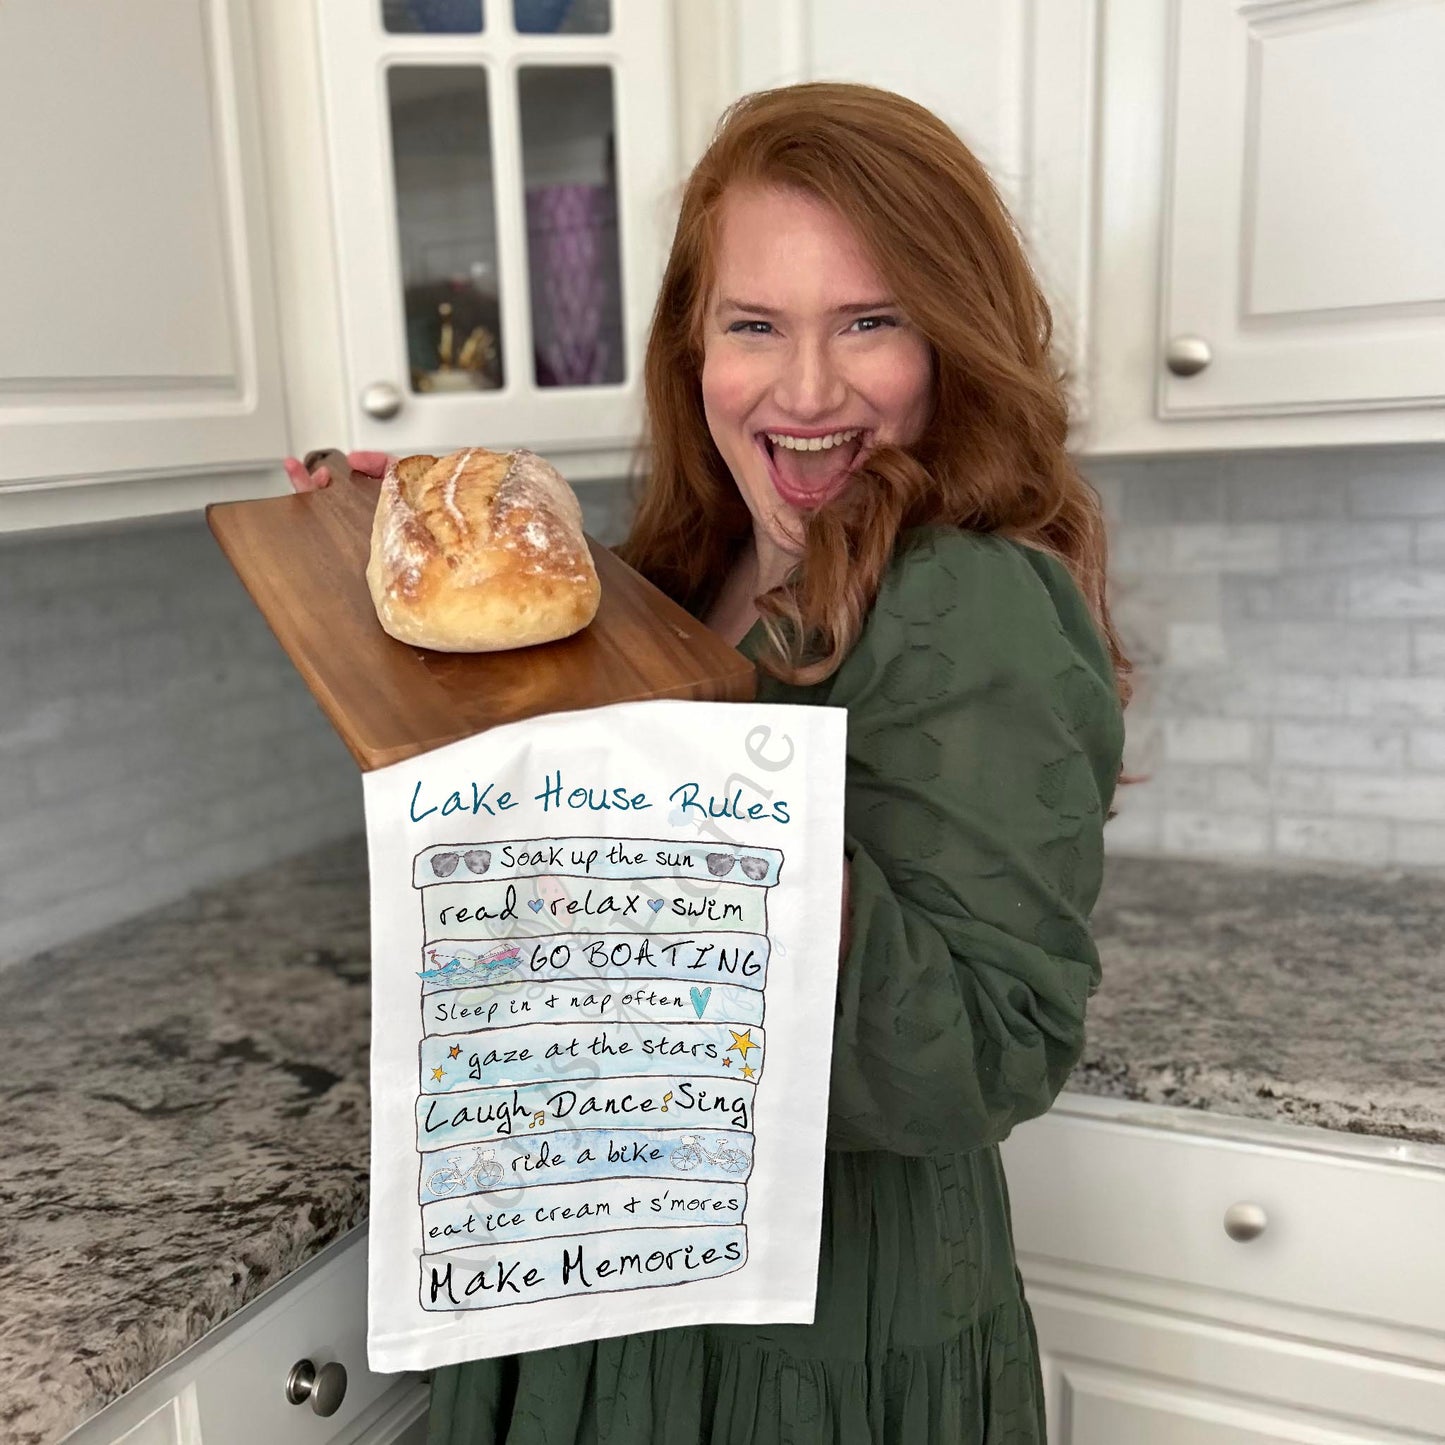 Lake House Rules
Soak up the sun
read relax swim
GO BOATING
Sleep in & nap often
gaze at the stars
Laugh Dance Sing
ride a bike
eat ice cream & s'mores
Make Memories